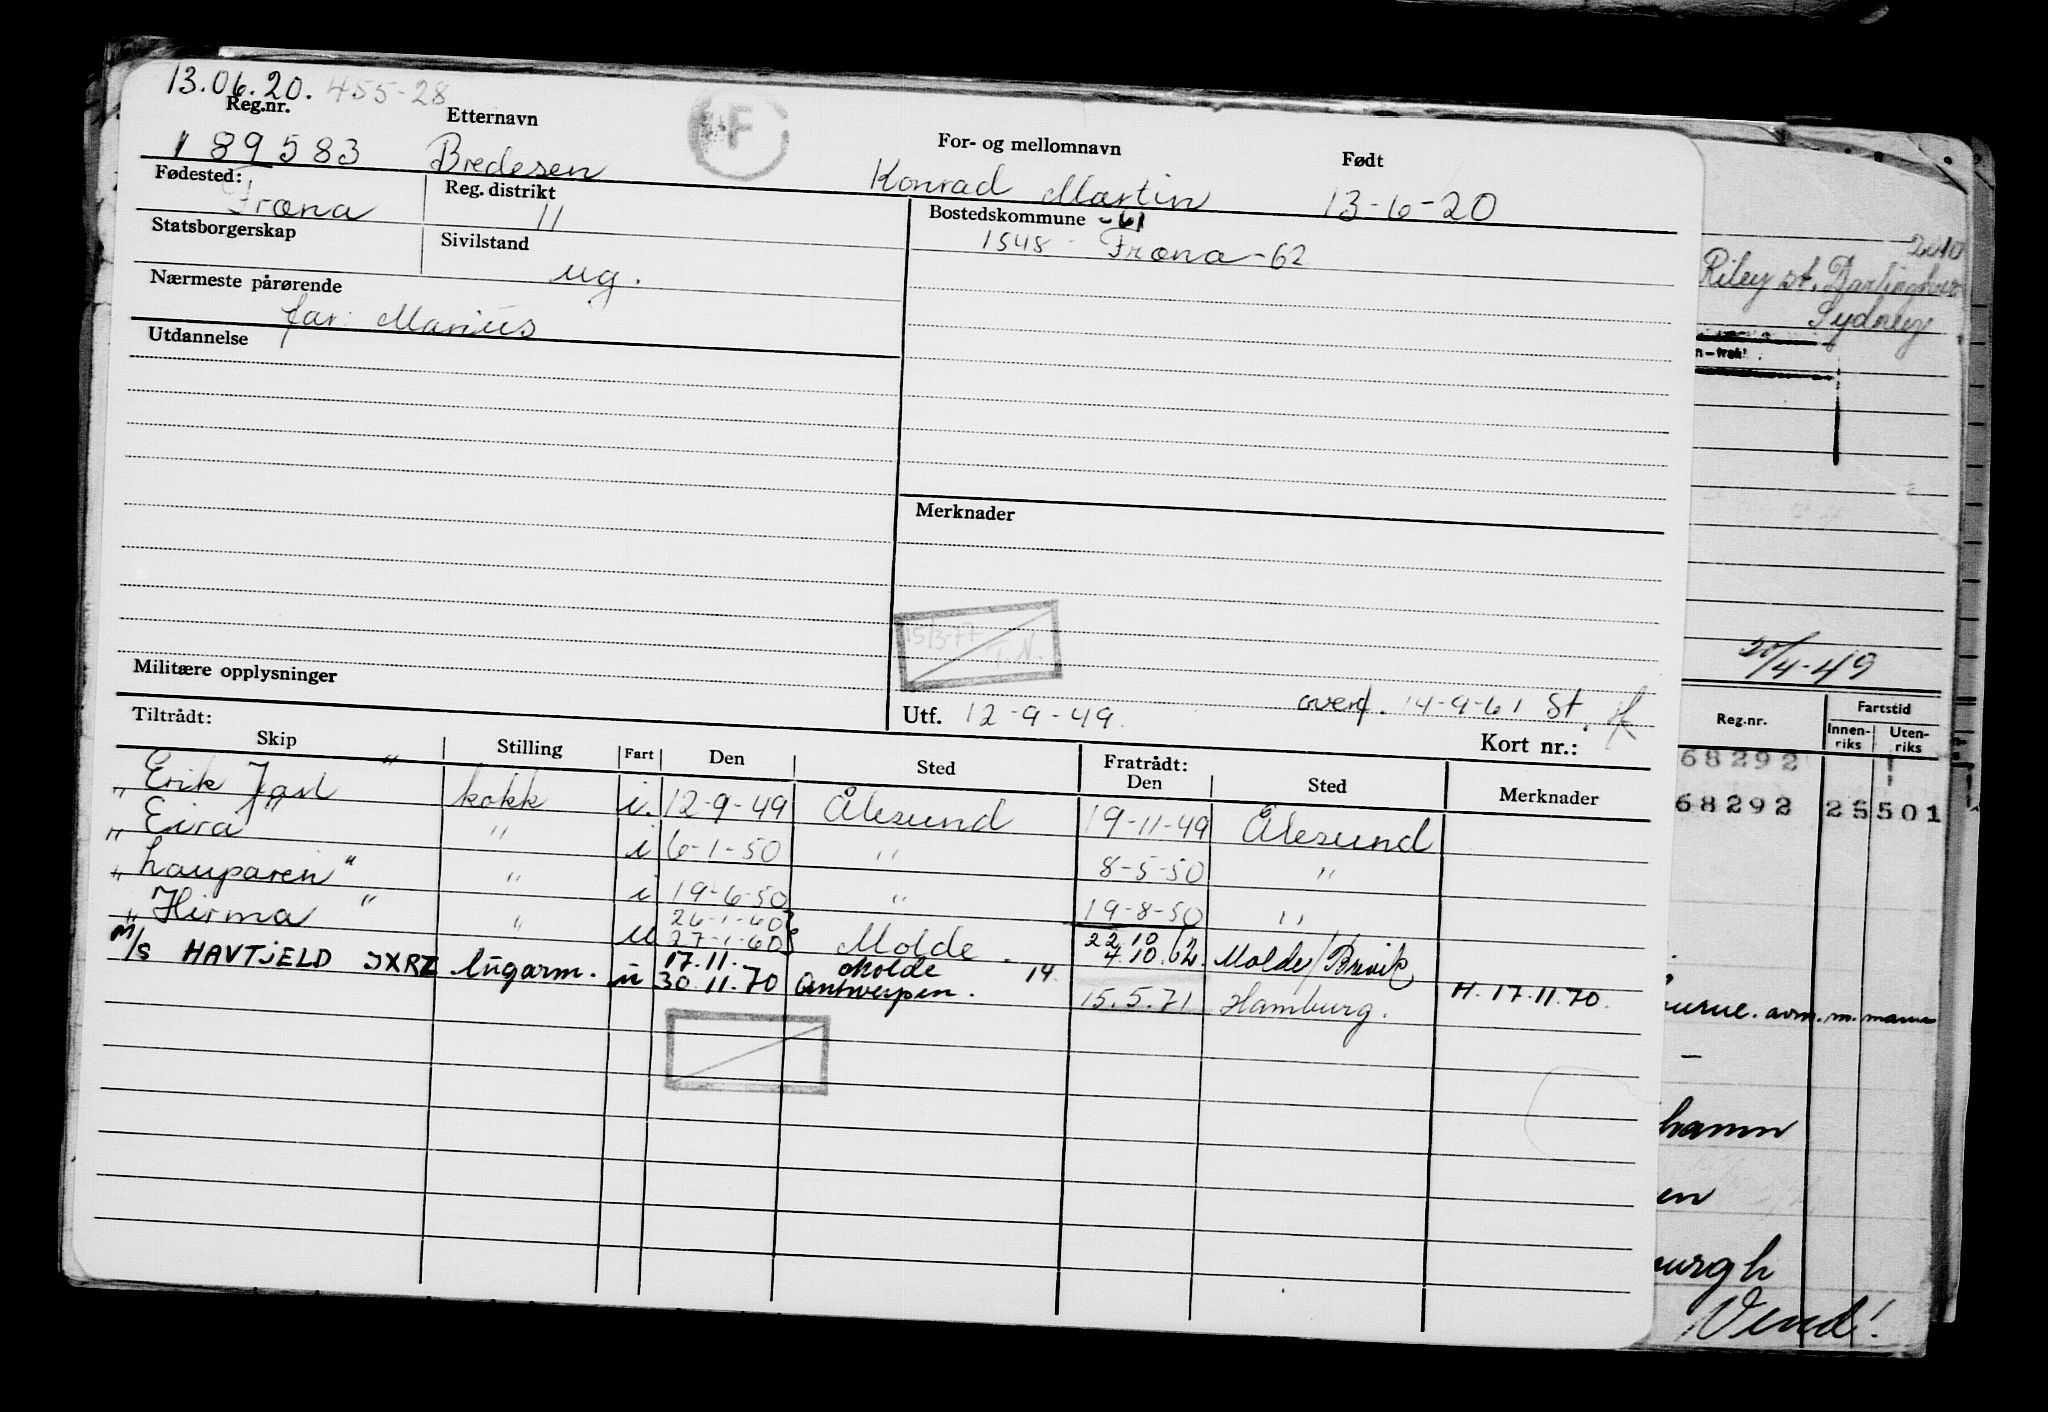 13.06.20. 455-28
Reg.nr. Etternavn For- og mellomnavn Født
189583 Bredesen Konrad Martin 13-6-20
F
Fødested: Reg. distrikt Bostedskommune -61
Fræna 11 1548 - Fræna-62
Statsborgerskap Sivilstand
ug.
Nærmeste pårørende
far: Marius
Utdannelse
Merknader
15/3-77 T.N.
Militære opplysninger
Utf. 12-9-49. overf. 14-9-61 St.
Kort nr.:
Tiltrådt: Fratrådt:
Skip Stilling Fart Den Sted Den Sted Merknader
" Erik Jarl " kokk i. 12-9-49 Ålesund 19-11-49 Ålesund
" Eira " " i 6-1-50 " 8-5-50 "
" Lauparen " " i 19-6-50 " 19-8-50 "
" Hirma " " u 26-1-60 27-1-60 Molde. 22.10 4.10.62 Molde/Brevik
M/S HAVTJELD JXRZ lugarm. u 17.11. 30.11.70 Molde Antwerpen. 14 15.5.71 Hamburg. H. 17.11.70.
2010
Riley st. Darlinghur
Sydney
n-trekk
20/4-49
Reg.nr. Fartstid
Innen-riks Uten-riks
68292
68292 25 501
avm. m. mann
hamn
en
urgh
Vend!